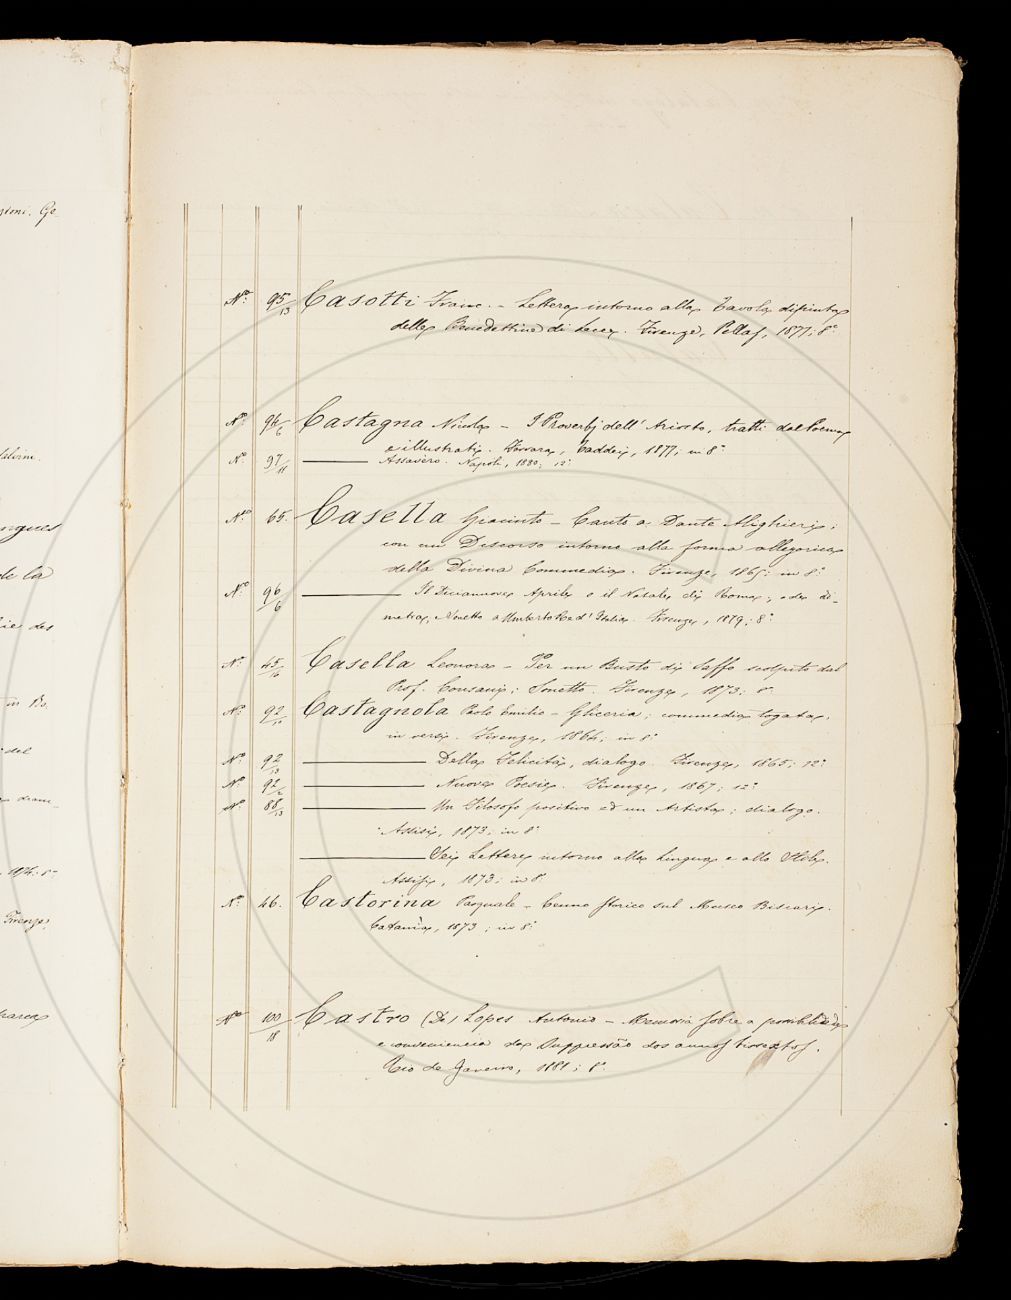 ntoni. Ge-
N.° 95/13 Casotti Franc. - Lettera intorno alla Tavola dipinta
delle Benedettine di Lecce. Firenze, Pellas, 1877; 8.°
N.° 94/6 Castagna Nicola - I Proverbj dell' Ariosto, tratti dal Poema
e illustrati. Ferrara, Taddei, 1877; in 8.°
N.° 97/11 ——— Assavéro. Napoli, 1880; 12.°
N.° 65. Casella Giacinto - Canto a Dante Alighieri;
con un Discorso intorno alla forma allegorica
della Divina Commedia. Firenze, 1865; in 8.°
N.° 96/6 ——— Il Diciannove Aprile o il Natale di Roma; ode di-
metra, Sonetto a Umberto Re d' Italia. Firenze, 1879; 8.°
N.° 45/16 Casella Leonora - Per un Busto di Saffo scolpito dal
Prof. Consani; Sonetto. Firenze, 1873; 8.°
N.° 92/11 Castagnola Paolo Emilio - Gliceria; commedia togata,
in versi. Firenze, 1864; in 8.°
N.° 92/13 ——— Della Felicità, dialogo. Firenze, 1865; 12.°
N.° 92/2 ——— Nuove Poesie. Firenze, 1867; 12.°
N.° 88/13 ——— Un Filosofo positivo ed un Artista; dialogo.
Assisi, 1873; in 8.°
——— Sei Lettere intorno alla Lingua e allo Stile.
Assisi, 1873; in 8.°
N.° 46. Castorina Pasquale - Cenno storico sul Museo Biscari.
Catania, 1873; in 8.°
N.° 100/18 Castro (De) Lopes Antonio - Memoria sobre a possibilidade
e conveniencia da Suppressão dos annos bissextos.
Rio de Janeiro, 1881; 8.°
ngues
de la
ie des
del
1874: 8.°
Firenze,